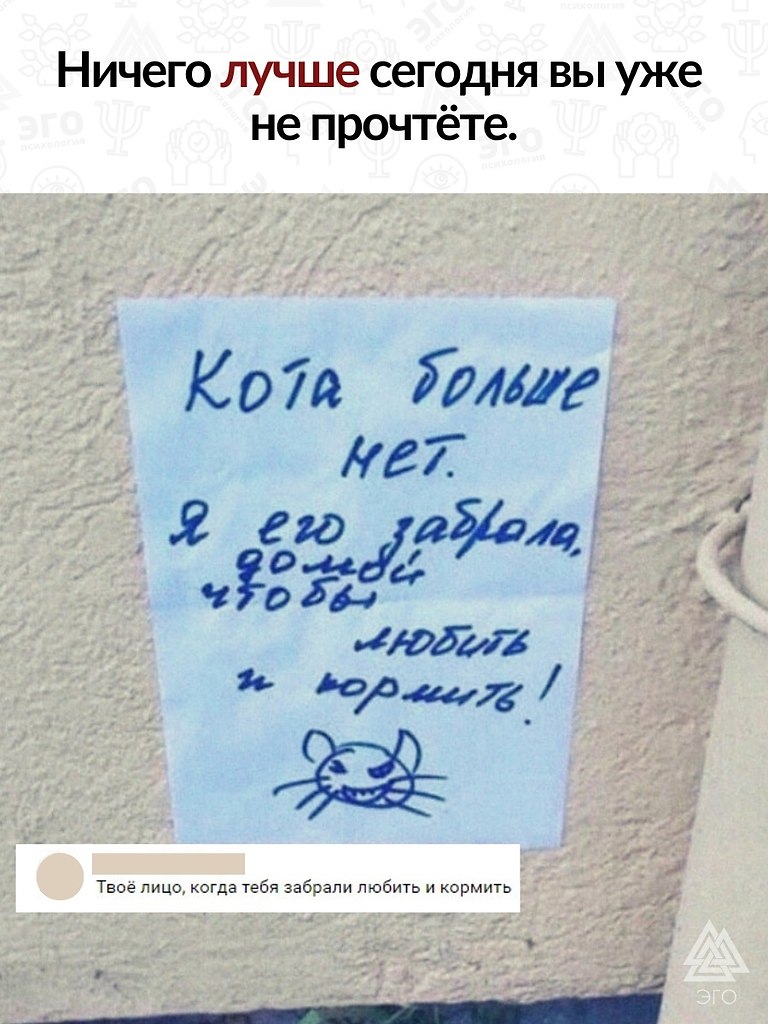 Ничего лучше сегодня вы уже
не прочтёте.
Кота больше
нет.
Я его забрала,
домой
чтобы
любить
и кормить!
Твоё лицо, когда тебя забрали любить и кормить
ЭГО